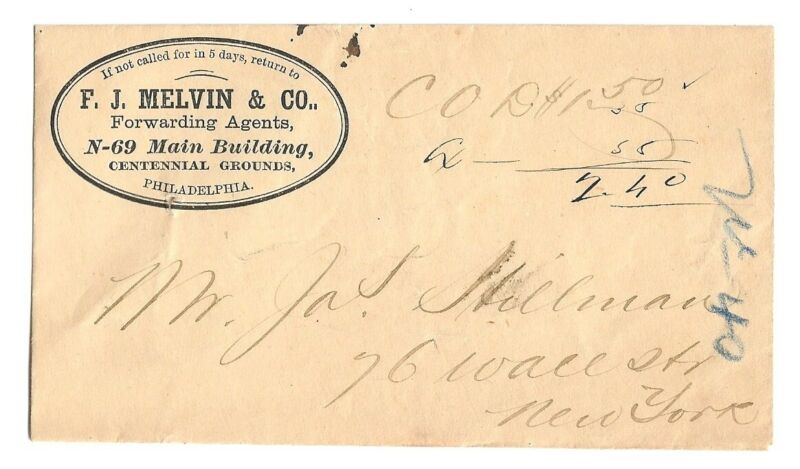 If not called for in 5 days, return to
F. J. MELVIN & CO.,
Forwarding Agents,
N-69 Main Building,
CENTENNIAL GROUNDS,
PHILADELPHIA.
C O D $1.50
55
55
2.40
Mr. Jas Stillman
76 Wall Str
New York
40